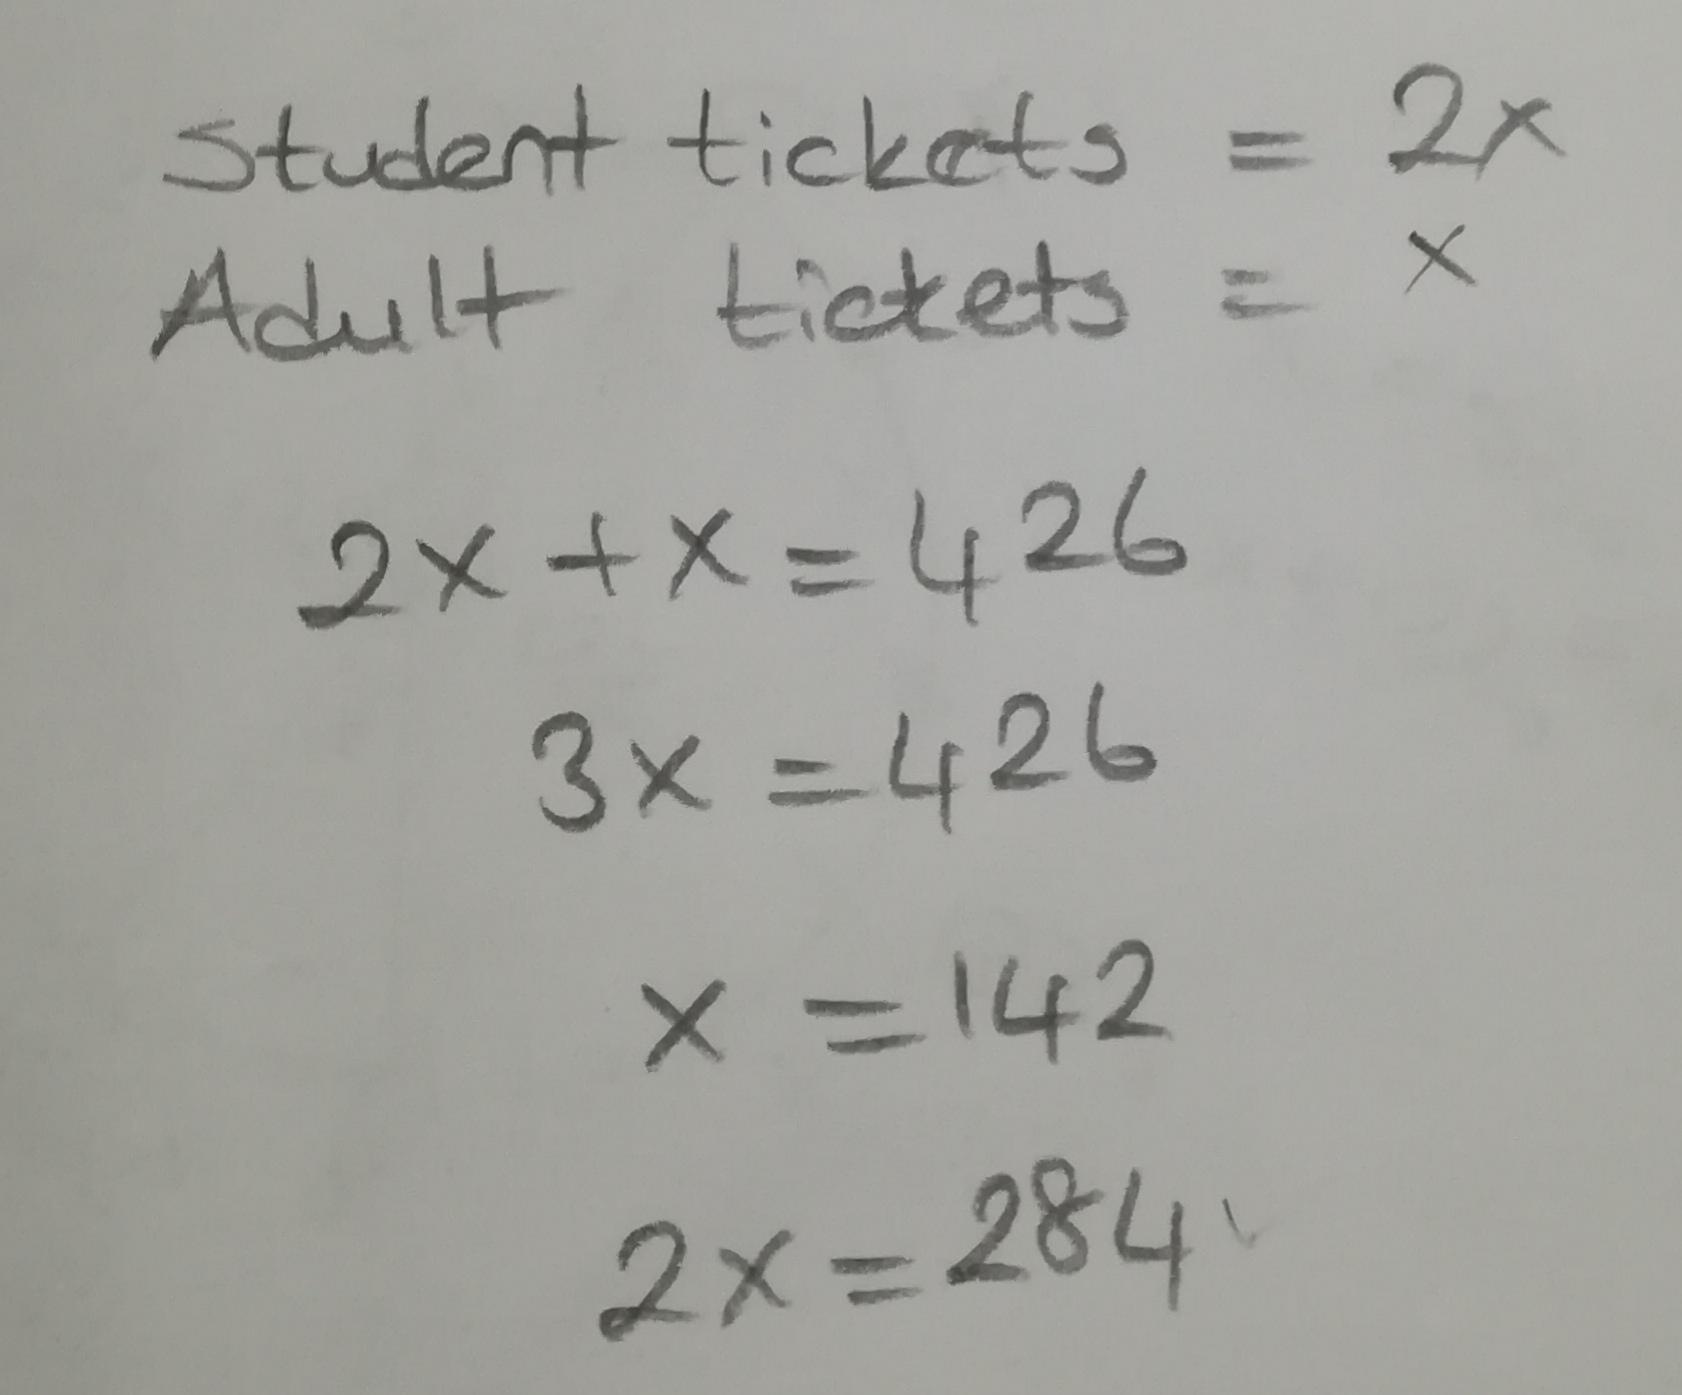 Student tickets = 2x
Adult tickets = x
2x + x = 426
3x = 426
x = 142
2x = 284